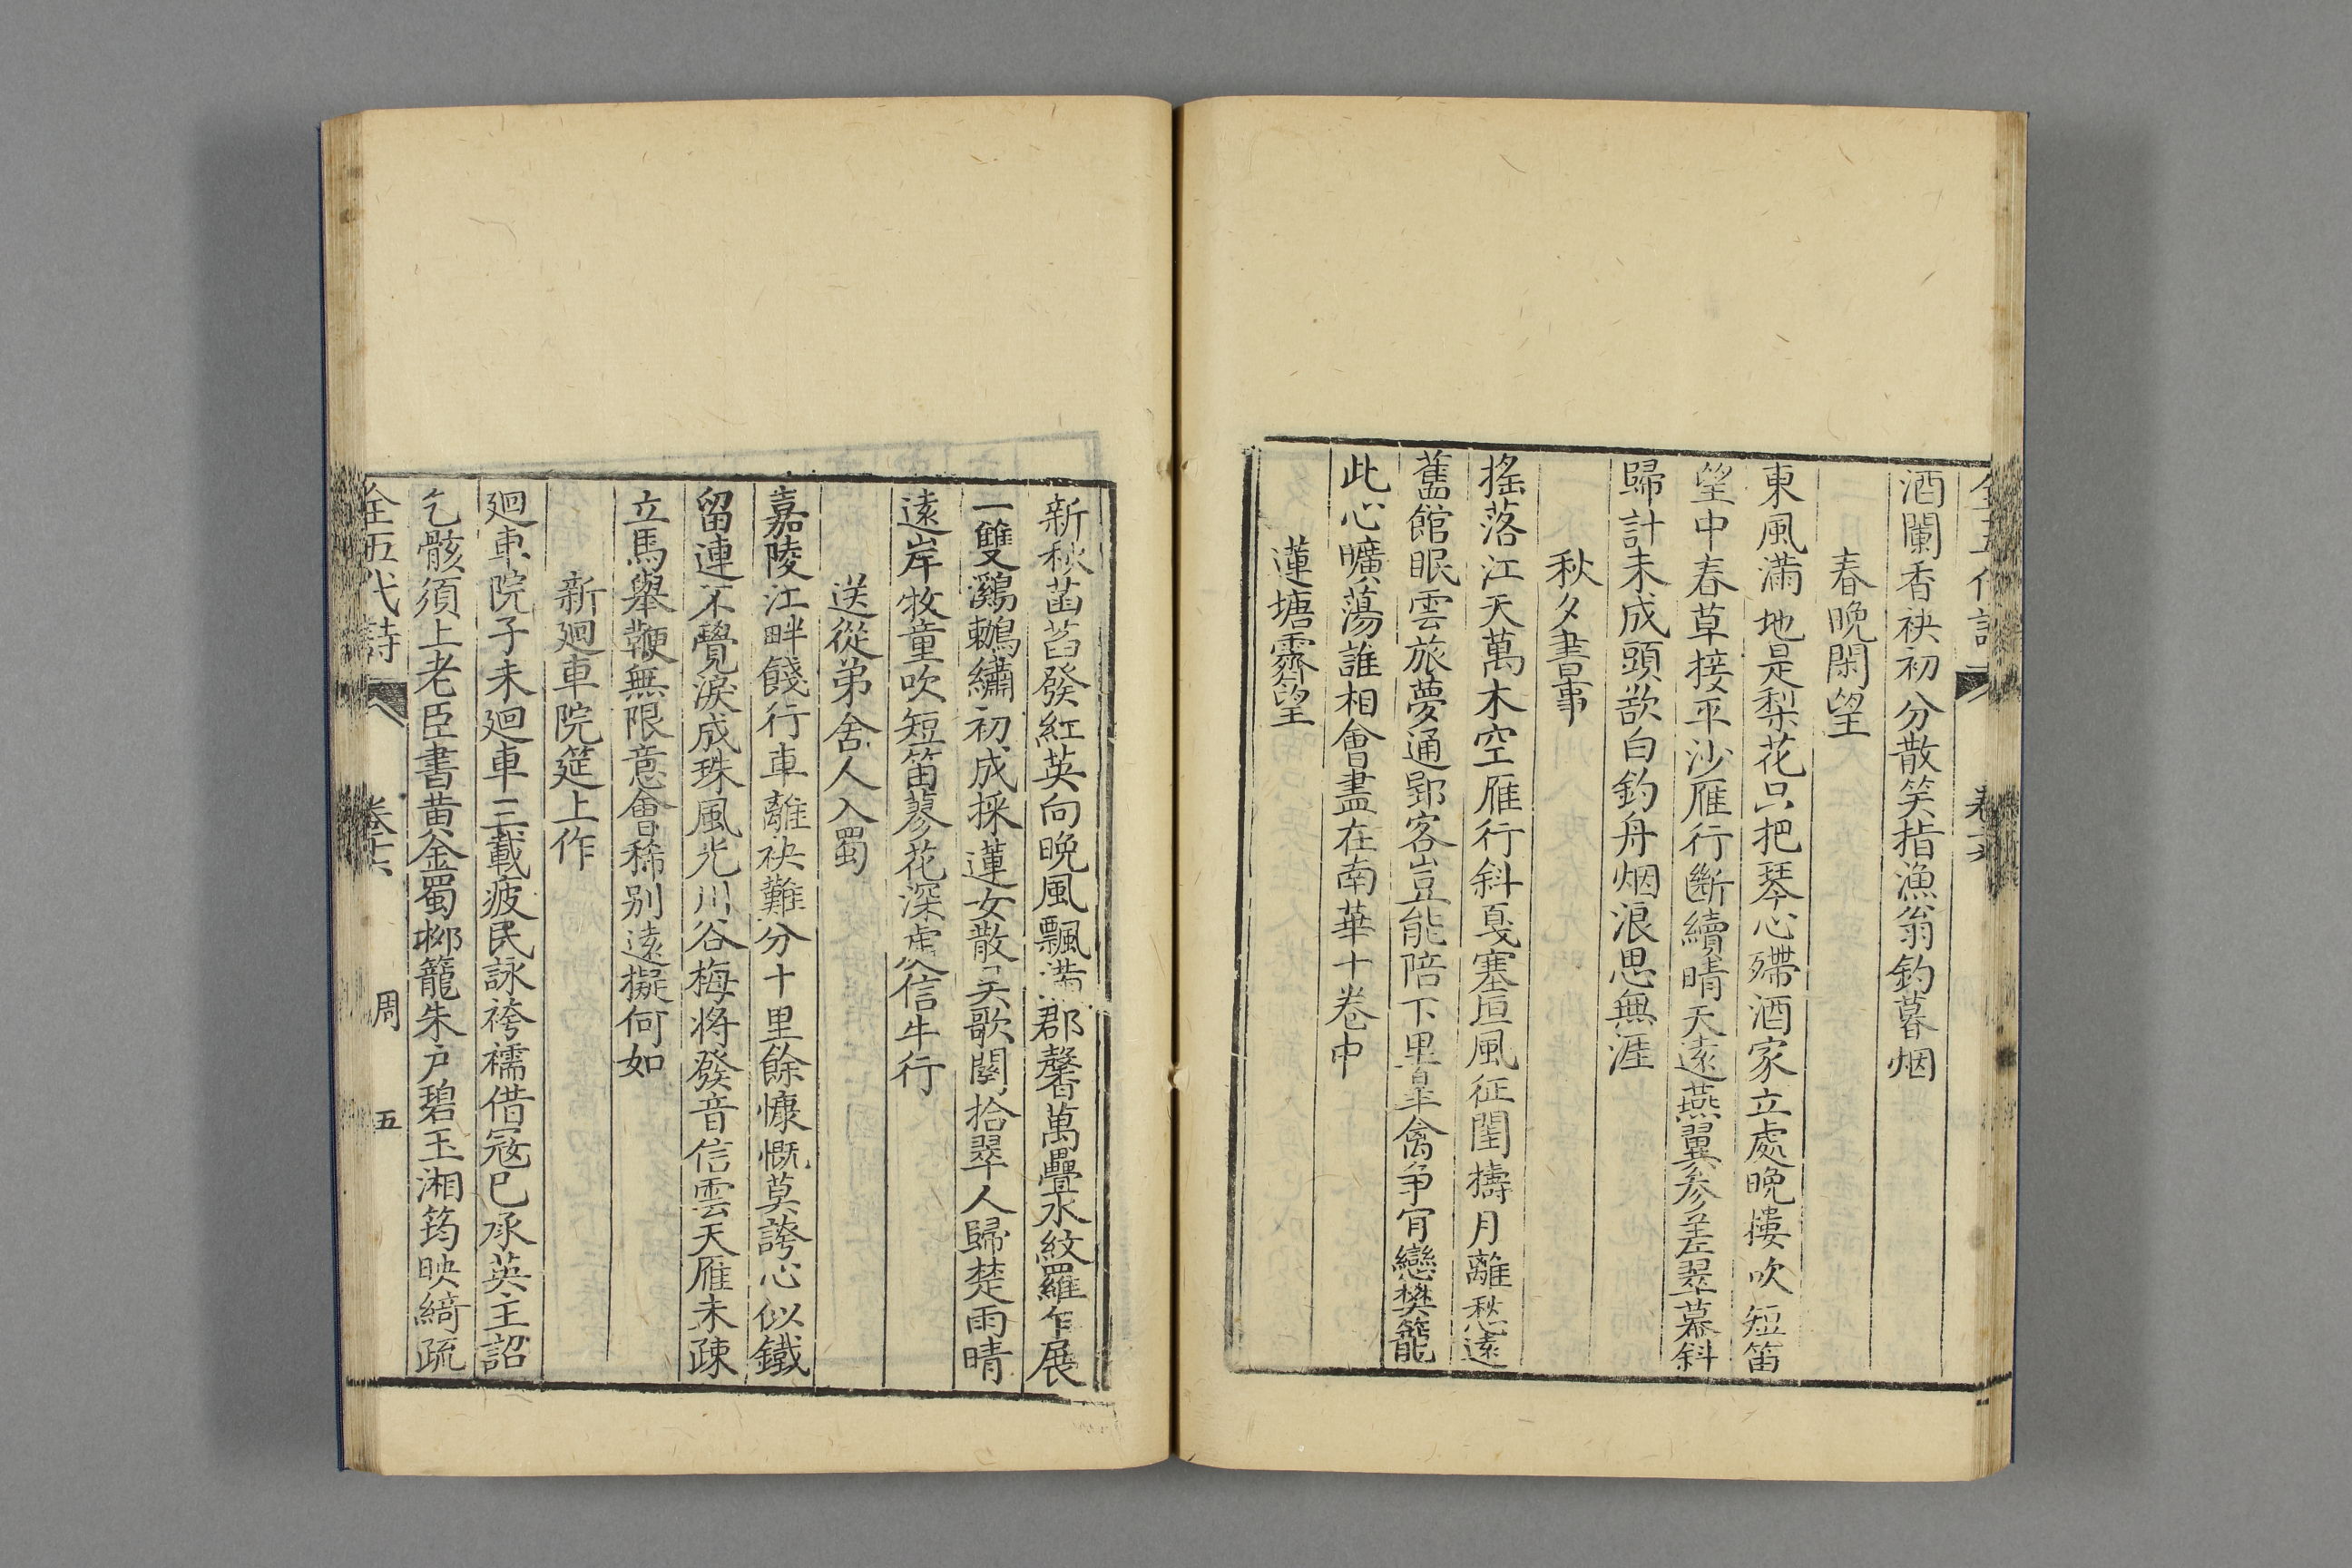 酒闌香袂初分散笑指漁翁釣暮烟
春晚閑望
東風滿地是梨花只把琴心殢酒家立處晚樓吹短笛
望中春草接平沙雁行斷續晴天遠燕翼參差翠幕斜
歸計未成頭欲白釣舟烟浪思無涯
秋夕書事
搖落江天萬木空雁行斜戞塞垣風征閨擣月離愁遠
舊館眠雲旅夢通郢客豈能陪下里皐禽争肯戀樊籠
此心曠蕩誰相會盡在南華十卷中
蓮塘霽望
新秋菡萏發紅英向晚風飄滿郡馨萬疊水紋羅乍展
一雙鸂鶒繡初成採蓮女散吴歌闋拾翠人歸楚雨晴
遠岸牧童吹短笛蓼花深處信牛行
送從弟舍人入蜀
嘉陵江畔餞行車離袂難分十里餘慷慨莫誇心似鐵
留連不覺淚成珠風光川谷梅將發音信雲天雁未疎
立馬舉鞭無限意會稀别遠擬何如
新廻車院筵上作
廻車院子未廻車三載疲民詠袴襦借寇已承英主詔
乞骸須上老臣書黄金蜀柳籠朱户碧玉湘筠映綺疏
全五代詩 卷十六 周 五